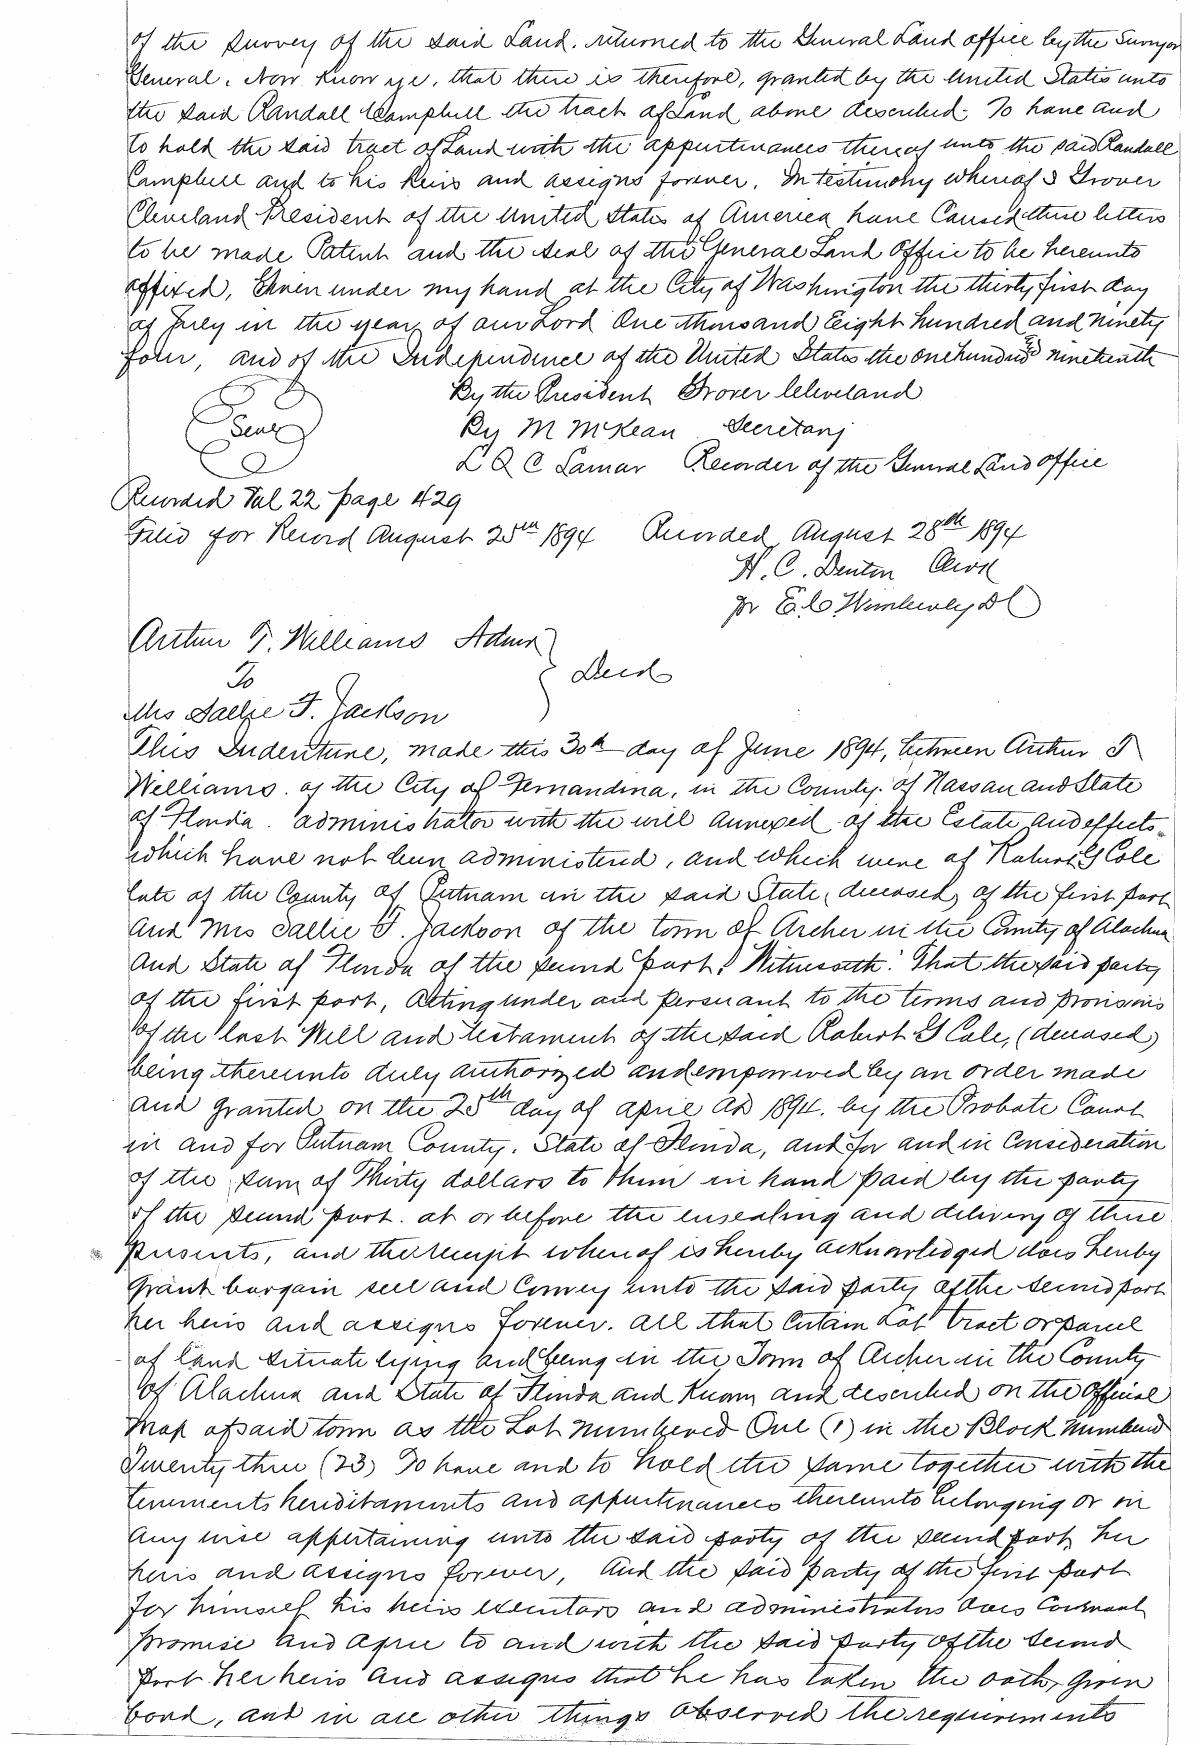 of the survey of the said Land. returned to the General Land office by the Surveyor
General. Now Know ye, that there is therefore, granted by the United States unto
the said Randall Campbell the tract of Land above described. To have and
to hold the said tract of Land with the appurtenances thereof unto the said Randall
Campbell and to his heirs and assigns forever. In testimony whereof I Grover
Cleveland President of the United States of America have Caused these letters
to be made Patent and the seal of the General Land Office to be hereunto
affixed, Given under my hand at the City of Washington the thirty first day
of July in the year of our Lord One thousand Eight hundred and ninety
four, and of the Independence of the United States the one hundred & nineteenth
By the President Grover Cleveland
Seal
By M McKean Secretary
L Q C Lamar Recorder of the General Land office
Recorded Vol 22 page 429
Filed for Record August 25th 1894 Recorded August 28th 1894
H. C. Denton Clerk
pr E. C. Wimberley D C
Arthur T. Williams Admr
To } Deed
Mrs Sallie F. Jackson
This Indenture, made this 30th day of June 1894, between Arthur T
Williams. of the City of Fernandina, in the County. of Nassau and State
of Florida. administrator with the will annexed of the Estate and effects
which have not been administered, and which were of Robert G Cole
late of the County of Putnam in the said State, deceased, of the first part
and Mrs Sallie F. Jackson of the town of Archer in the County of Alachua
and State of Florida of the second part, Witnesseth: That the said party
of the first part, Acting under and persuant to the terms and provisions
of the last Will and testament of the said Robert G Cole, (deceased)
being thereunto duly authorized and empowered by an order made
and granted on the 25th day of April AD 1894. by the Probate Court
in and for Putnam County. State of Florida, and for and in Consideration
of the sum of Thirty dollars to them in hand paid by the party
of the second part. at or before the ensealing and delivery of these
presents, and the receipt whereof is hereby acknowledged does hereby
grant bargain sell and Convey unto the said party of the second part
her heirs and assigns forever. all that Certain Lot tract or parcel
of land situate lying and being in the Town of Archer in the County
of Alachua and State of Florida and Known and described on the Official
map of said town as the Lot numbered One (1) in the Block numbered
Twenty three (23) To have and to hold the same together with the
tenements hereditaments and appurtenances thereunto belonging or in
any wise appertaining unto the said party of the second part her
heirs and assigns forever, And the said party of the first part
for himself his heirs executors and administrators does Covenant
promise and agree to and with the said party of the second
part her heirs and assigns that he has taken the oath, given
bond, and in all other things observed the requirements